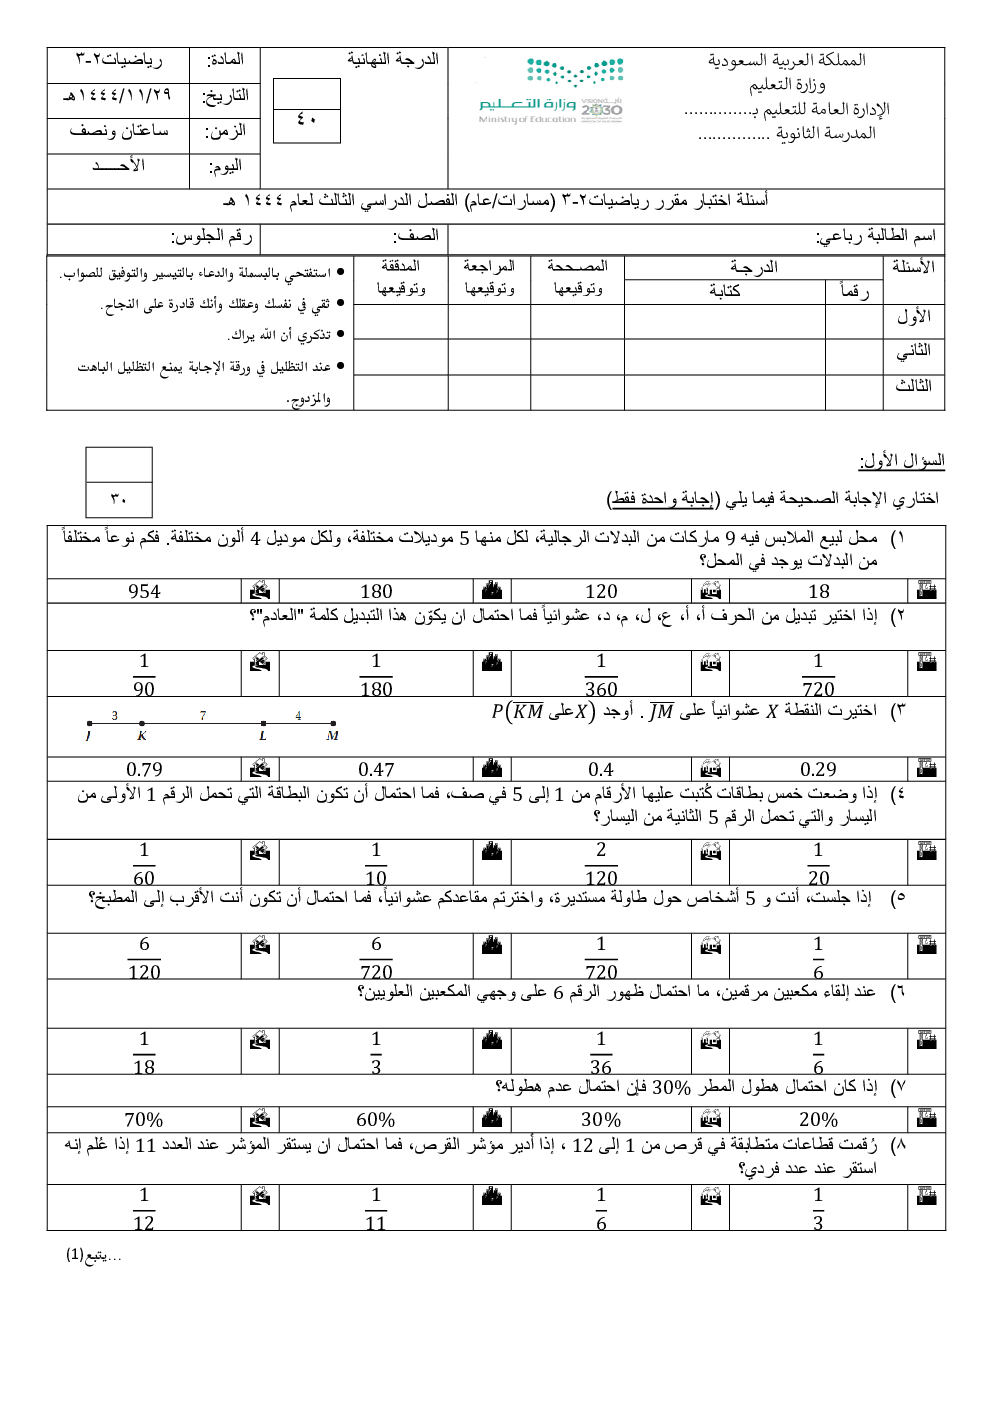 المملكة العربية السعودية
وزارة التعليم
الإدارة العامة للتعليم بـ...............
المدرسة الثانوية ...............
وزارة التعليم
Ministry of Education
VISION رؤية
2030
الدرجة النهائية
٤٠
المادة: رياضيات٢-٣
التاريخ: ١٤٤٤/١١/٢٩هـ
الزمن: ساعتان ونصف
اليوم: الأحـــــد
أسئلة اختبار مقرر رياضيات٢-٣ (مسارات/عام) الفصل الدراسي الثالث لعام ١٤٤٤ هـ
اسم الطالبة رباعي: الصف: رقم الجلوس:
الأسئلة الدرجـة المصـححة وتوقيعها المراجعة وتوقيعها المدققة وتوقيعها
رقماً كتابة
الأول
الثاني
الثالث
● استفتحي بالبسملة والدعاء بالتيسير والتوفيق للصواب.
● ثقي في نفسك وعقلك وأنك قادرة على النجاح.
● تذكري أن الله يراك.
● عند التظليل في ورقة الإجابة يمنع التظليل الباهت
والمزدوج.
السؤال الأول:
٣٠
اختاري الإجابة الصحيحة فيما يلي (إجابة واحدة فقط)
١) محل لبيع الملابس فيه 9 ماركات من البدلات الرجالية، لكل منها 5 موديلات مختلفة، ولكل موديل 4 ألون مختلفة. فكم نوعاً مختلفاً
من البدلات يوجد في المحل؟
18 120 180 954
٢) إذا اختير تبديل من الحرف أ، أ، ع، ل، م، د، عشوائياً فما احتمال ان يكوّن هذا التبديل كلمة "العادم"؟
1/720 1/360 1/180 1/90
٣) اختيرت النقطة X عشوائياً على JM . أوجد P(KM على X)
3 7 4
J K L M
0.29 0.4 0.47 0.79
٤) إذا وضعت خمس بطاقات كُتبت عليها الأرقام من 1 إلى 5 في صف، فما احتمال أن تكون البطاقة التي تحمل الرقم 1 الأولى من
اليسار والتي تحمل الرقم 5 الثانية من اليسار؟
1/20 2/120 1/10 1/60
٥) إذا جلست، أنت و 5 أشخاص حول طاولة مستديرة، واخترتم مقاعدكم عشوائياً، فما احتمال أن تكون أنت الأقرب إلى المطبخ؟
1/6 1/720 6/720 6/120
٦) عند إلقاء مكعبين مرقمين، ما احتمال ظهور الرقم 6 على وجهي المكعبين العلويين؟
1/6 1/36 1/3 1/18
٧) إذا كان احتمال هطول المطر 30% فإن احتمال عدم هطوله؟
20% 30% 60% 70%
٨) رُقمت قطاعات متطابقة في قرص من 1 إلى 12 ، إذا أدير مؤشر القرص، فما احتمال ان يستقر المؤشر عند العدد 11 إذا عُلم إنه
استقر عند عدد فردي؟
1/3 1/6 1/11 1/12
...يتبع(1)